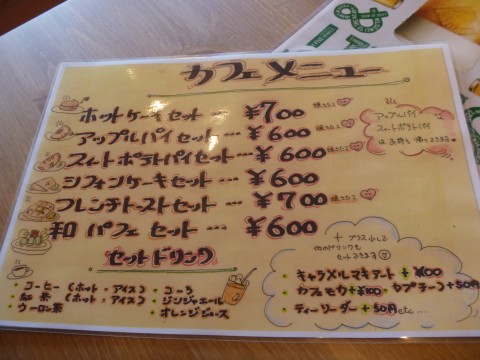 カフェメニュー
ホットケーキセット … ¥700 焼きたて
アップルパイセット … ¥600 焼きたて
スィートポテトパイセット … ¥600 焼きたて
シフォンケーキセット … ¥600
フレンチトーストセット … ¥700 焼きたて
和パフェセット … ¥600
アップルパイ
スィートポテトパイ
は お持ち帰りできます
セットドリンク
・コーヒー(ホット・アイス)
・紅茶(ホット・アイス)
・ウーロン茶
・コーラ
・ジンジャエール
・オレンジジュース
+プラス少しで
他のドリンクも
セットできます
・キャラメルマキアート+¥100
・カフェモカ+¥100 ・カプチーノ+50円
・ティーソーダー+50円 etc…